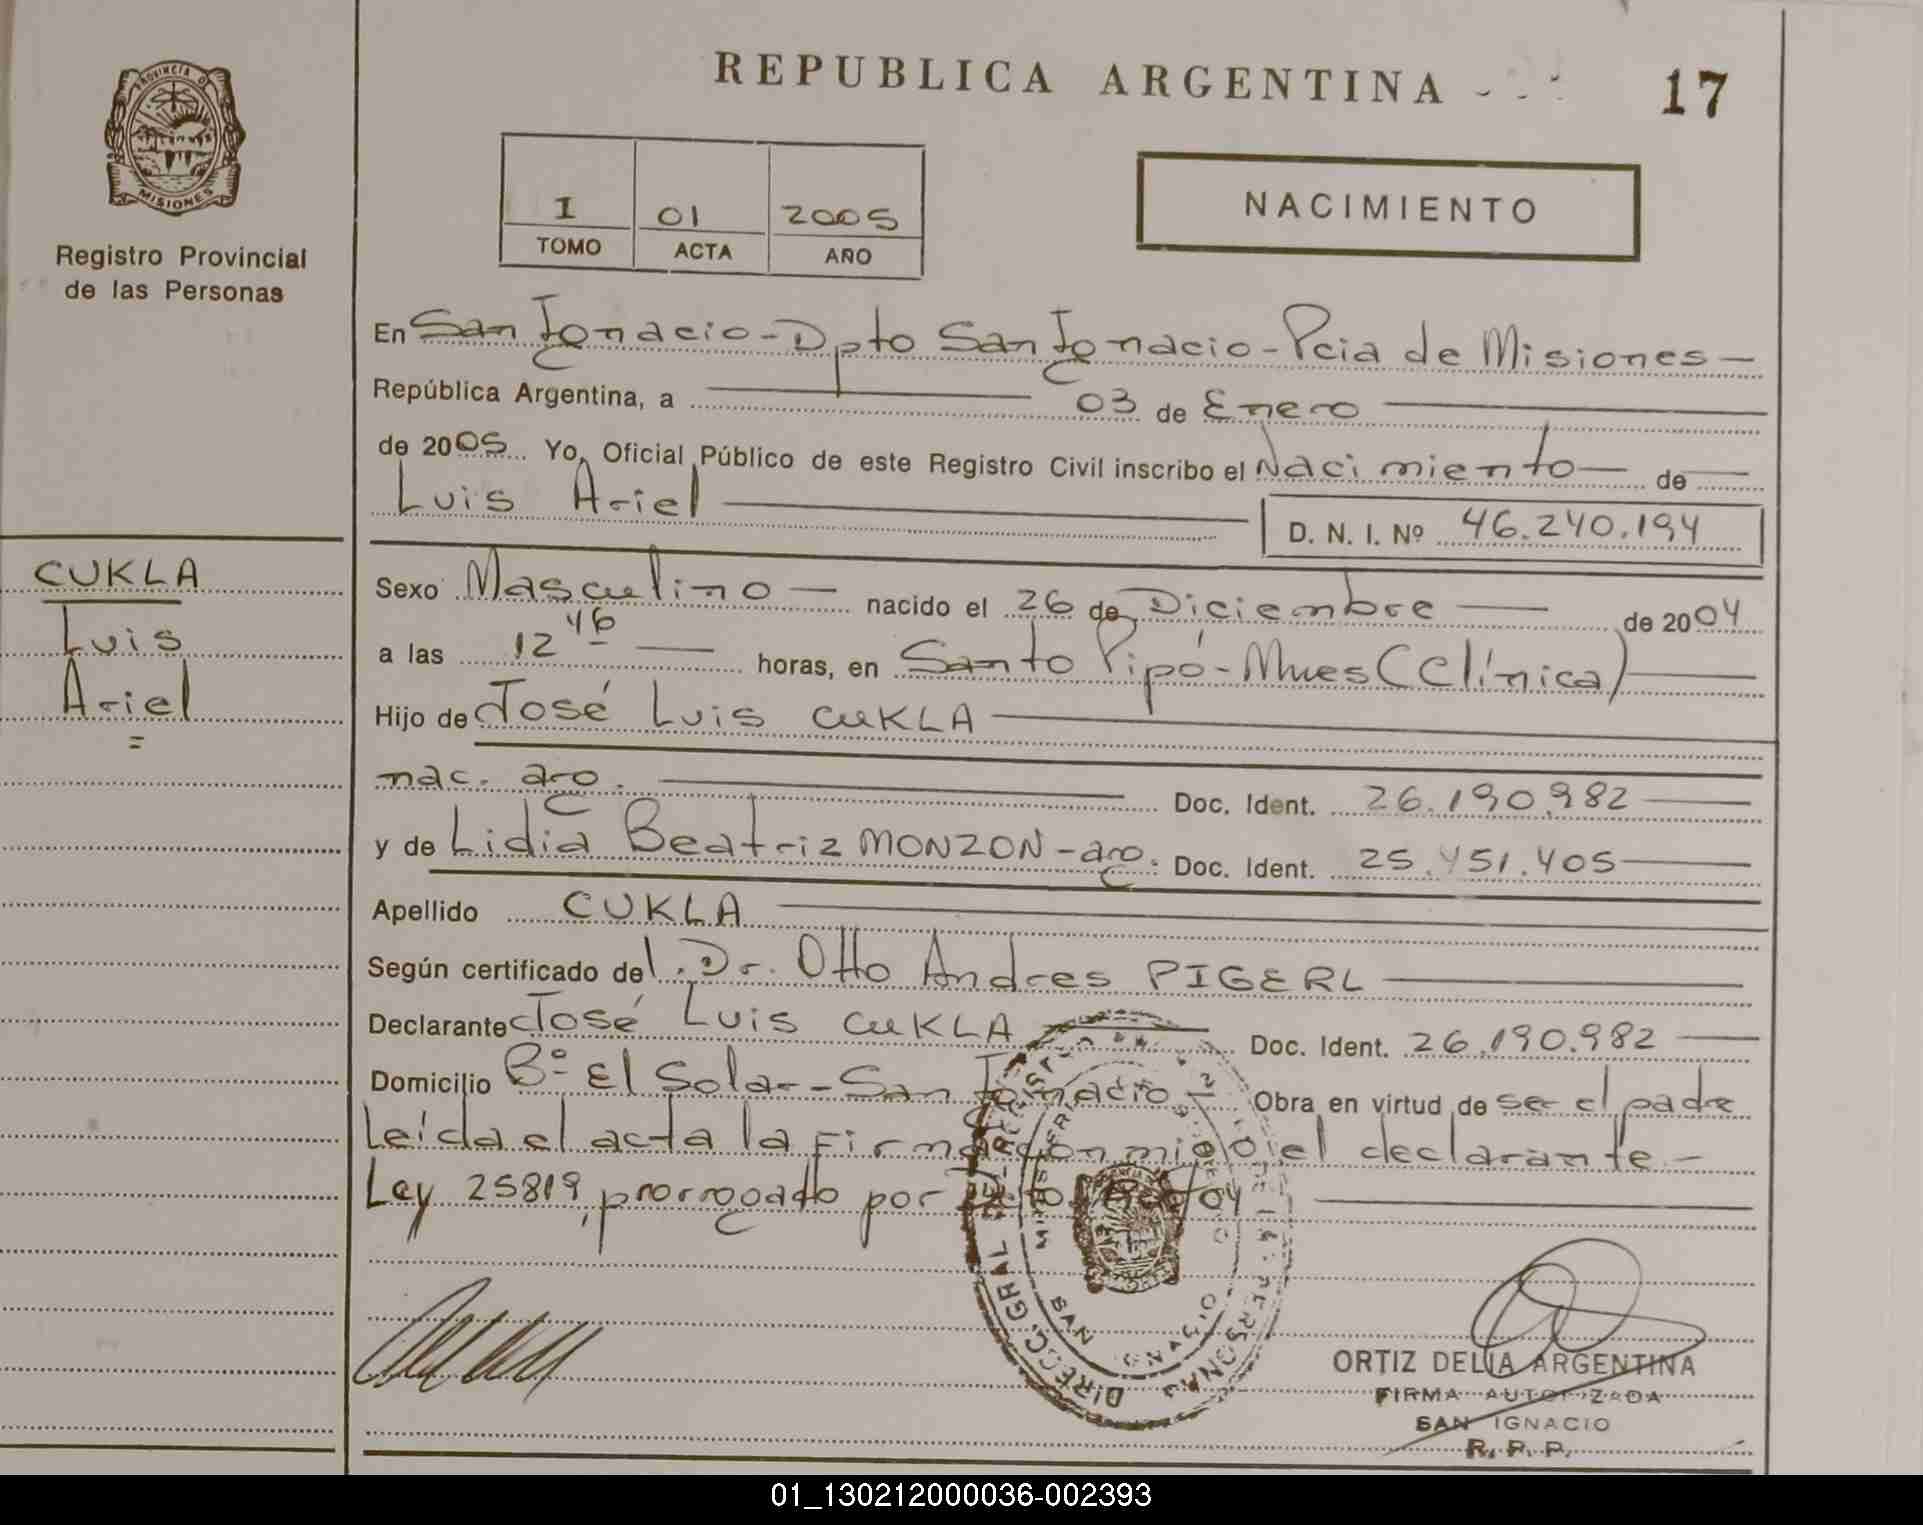 PROVINCIA D
MISIONES
Registro Provincial
de las Personas
REPUBLICA ARGENTINA
17
I 01 2005
TOMO ACTA AÑO
NACIMIENTO
En San Ignacio - Dpto San Ignacio - Pcia de Misiones -
República Argentina, a 03 de Enero
de 2005 Yo, Oficial Público de este Registro Civil inscribo el Nacimiento de
Luis Ariel
D. N. I. Nº 46.240.194
CUKLA
Luis
Ariel
Sexo Masculino nacido el 26 de Diciembre de 2004
a las 12 46 horas, en Santo Pipó - Mnes (Clínica)
Hijo de José Luis CUKLA
nac. arg. Doc. Ident. 26.190.982
y de Lidia Beatriz MONZON - arg. Doc. Ident. 25.451.405
Apellido CUKLA
Según certificado del. Dr. Otto Andres PIGERL
Declarante José Luis CUKLA Doc. Ident. 26.190.982
Domicilio Bº El Solar - San Ignacio - Obra en virtud de ser el padre
Leída el acta la firma con migo el declarante -
Ley 25819, prorrogado por /04
DIRECC. GRAL DEL REGISTRO DE LAS PERSONAS
SAN IGNACIO
ORTIZ DELIA ARGENTINA
FIRMA AUTORIZADA
SAN IGNACIO
R. P. P.
01_130212000036-002393